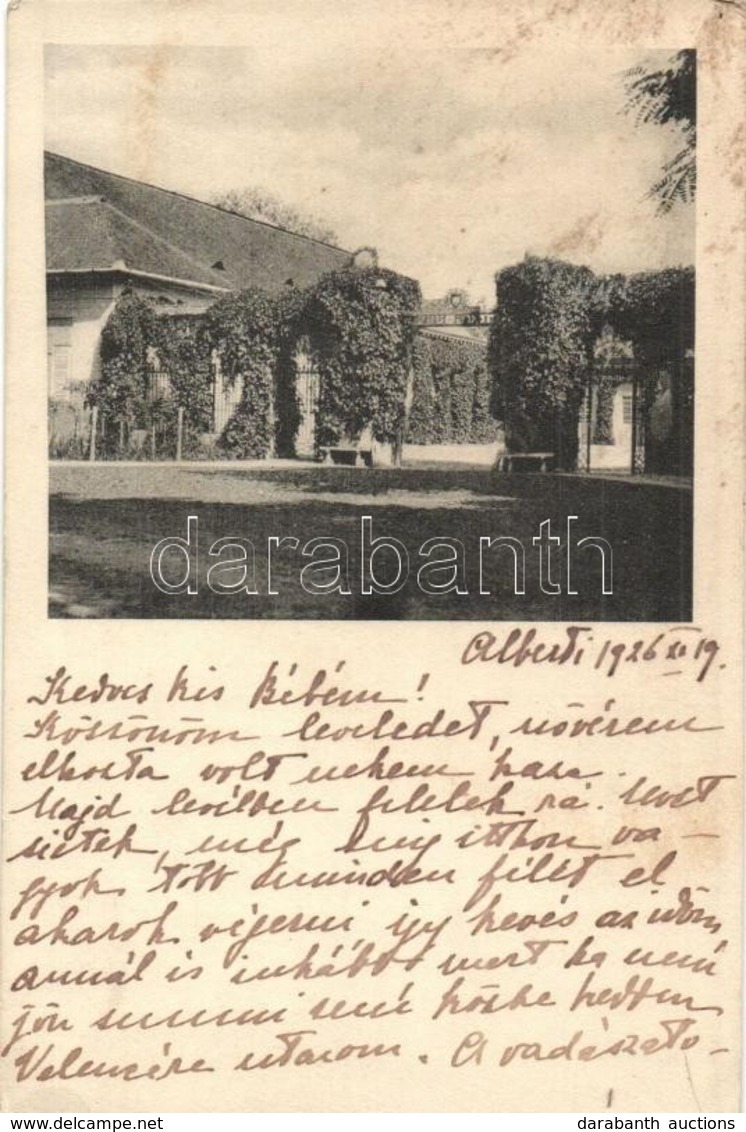 darabanth
Alberti 1926 XI 19.
Kedves kis Bébém!
Köszönöm leveledet, nővérem
elhozta volt nekem haza.
Majd levélben felelek rá. Most
sietek, még míg itthon va-
gyok több minden félét el
akarok végezni így kevés az időm,
annál is inkább mert ha nem
jön semmi sem közbe kedden
Velencére utazom. A vadászato-
darabanth auctions